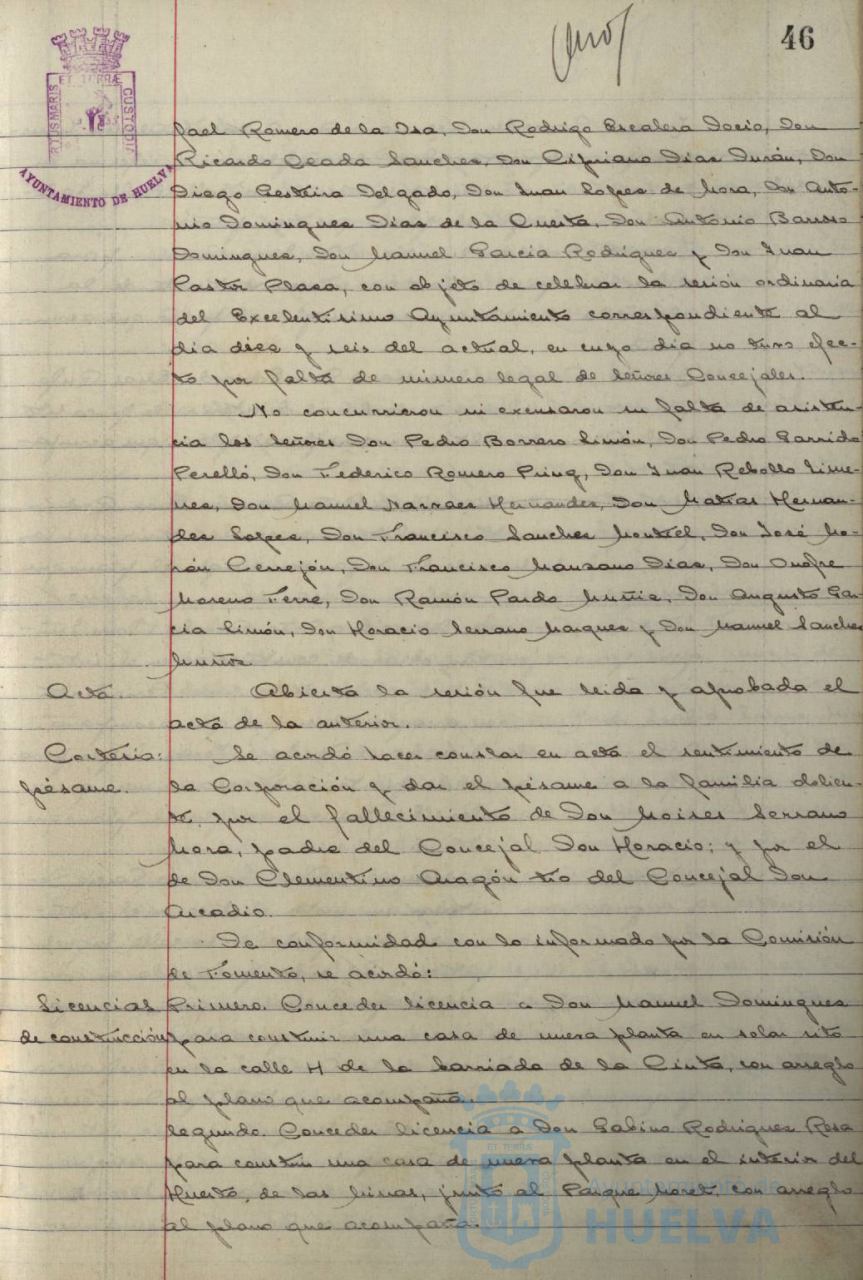 46
ET TERRÆ
RTUS MARIS
CUSTODIT
AYUNTAMIENTO DE HUELVA
fael Romero de la Osa, Don Rodrigo Escalera Docio, Don
Ricardo Ceada Sanchez, Don Cipriano Dias Durán, Don
Diego Gesteira Delgado, Don Juan Lopez de Mora, Don Anto-
nio Domingues Dias de la Cuesta, Don Antonio Barroso
Domingues, Don Manuel García Rodríguez y Don Juan
Pastor Plaza, con objeto de celebrar la sesión ordinaria
del Excelentísimo Ayuntamiento correspondiente al
dia diez y seis del actual, en cuyo dia no tuvo efec-
to por falta de número legal de Señores Concejales.
No concurrieron ni excusaron su falta de asisten-
cia los Señores Don Pedro Borrero Limón, Don Pedro Garrido
Perelló, Don Federico Romero Pring, Don Juan Rebollo Jime-
nez, Don Manuel Narvaez Hernandez, Don Matías Hernan-
dez Lopez, Don Francisco Sanchez Montiel, Don José Mo-
rón Cerrejón, Don Francisco Manzano Dias, Don Onofre
Moreno Ferre, Don Ramón Pardo Muñiz, Don Augusto Gar-
cia Limón, Don Horacio Serrano Marquez y Don Manuel Sanchez
Muñoz.
Acta. Abierta la sesión fue leida y aprobada el
acta de la anterior.
Cortesía: Se acordó hacer constar en acta el sentimiento de
pésame. la Corporación y dar el pésame a la familia dolien-
te, por el fallecimiento de Don Moises Serrano
Mora, padre del Concejal Don Horacio; y por el
de Don Clementino Aragón tio del Concejal Don
Arcadio.
De conformidad con lo informado por la Comisión
de Fomento, se acordó:
Licencias Primero. Conceder licencia a Don Manuel Domingues
de construcción para construir una casa de nueva planta en solar sito
en la calle H de la barriada de la Cinta, con arreglo
al plano que acompaña.
Segundo. Conceder licencia a Don Gabino Rodriguez Rosa
para constuir una casa de nueva planta en el interior del
Huerto, de las Minas, junto al Parque Moret, con arreglo
al plano que acompaña.
Ayuntamiento de
HUELVA